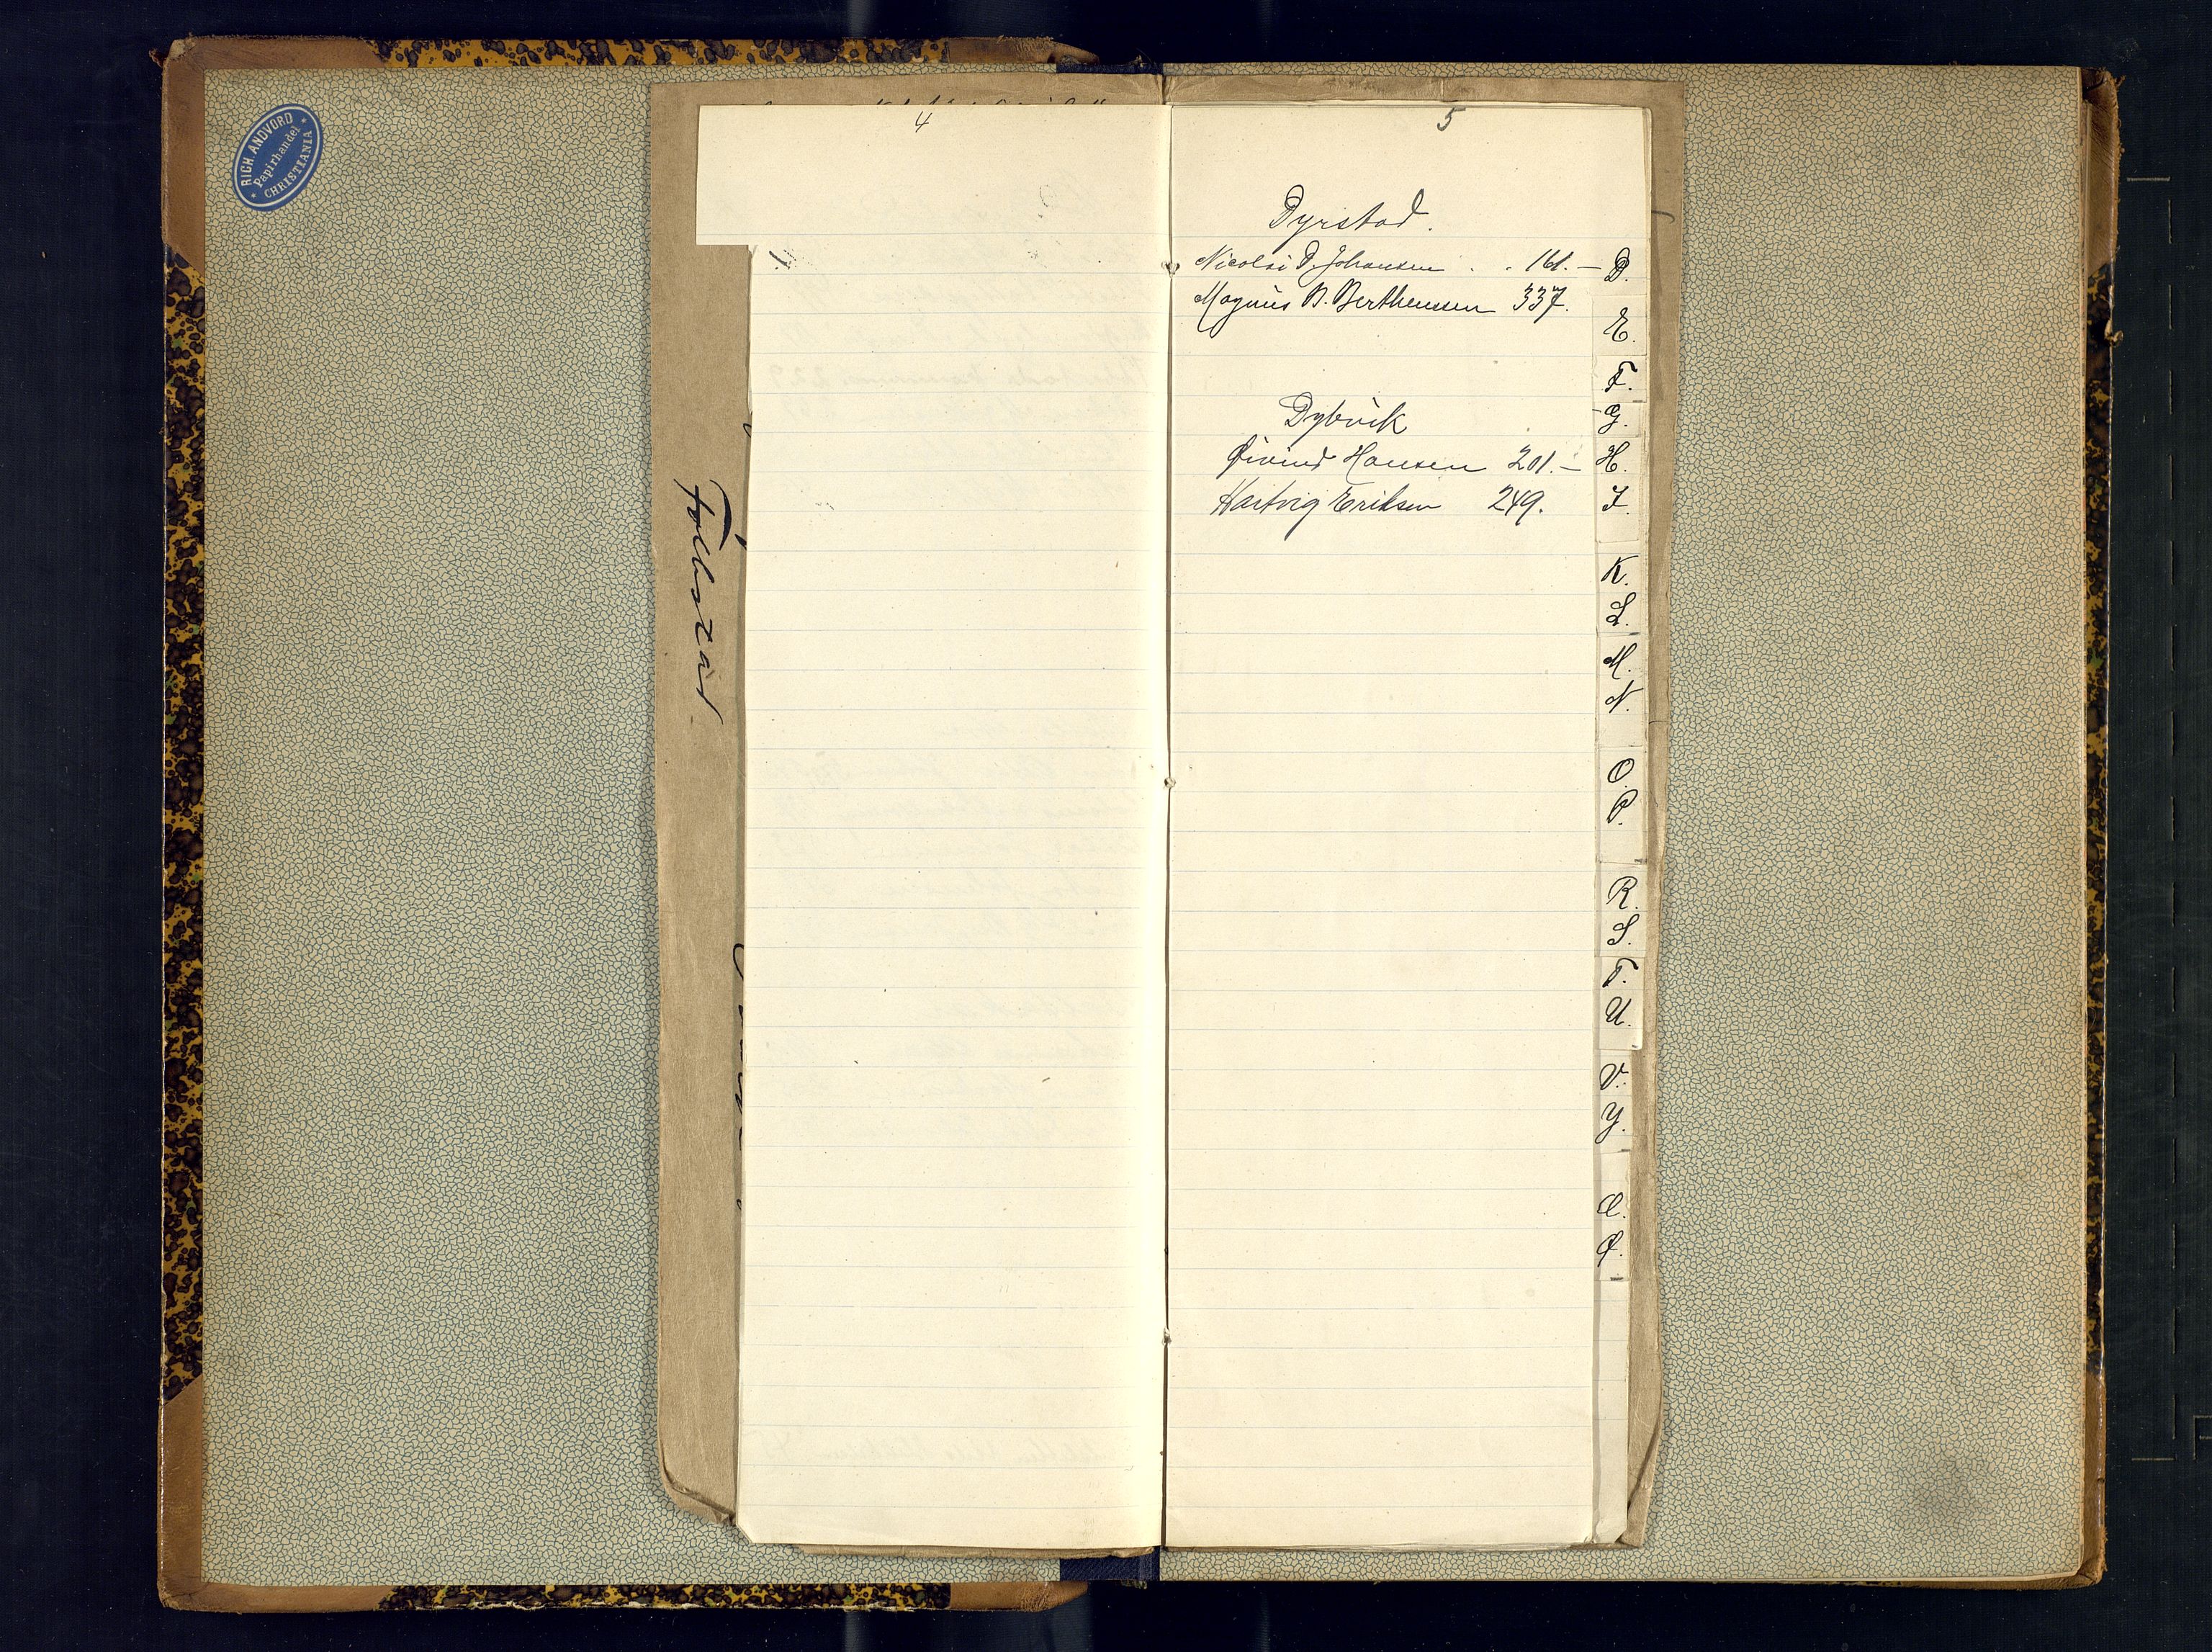 RICH. ANDVORD
Papirhandel
CHRISTIANIA
4
5
Folkstad
Dyrstad.
Nicolai D. Johansen . . 161. –
Magnus B. Berthensen 337.
Dybvik
Øivind Hansen 201. –
Hartvig Eriksen 249.
D.
E.
F.
G.
H.
I.
K.
L.
M.
N.
O.
P.
R.
S.
T.
U.
V.
Y.
Æ.
Ø.